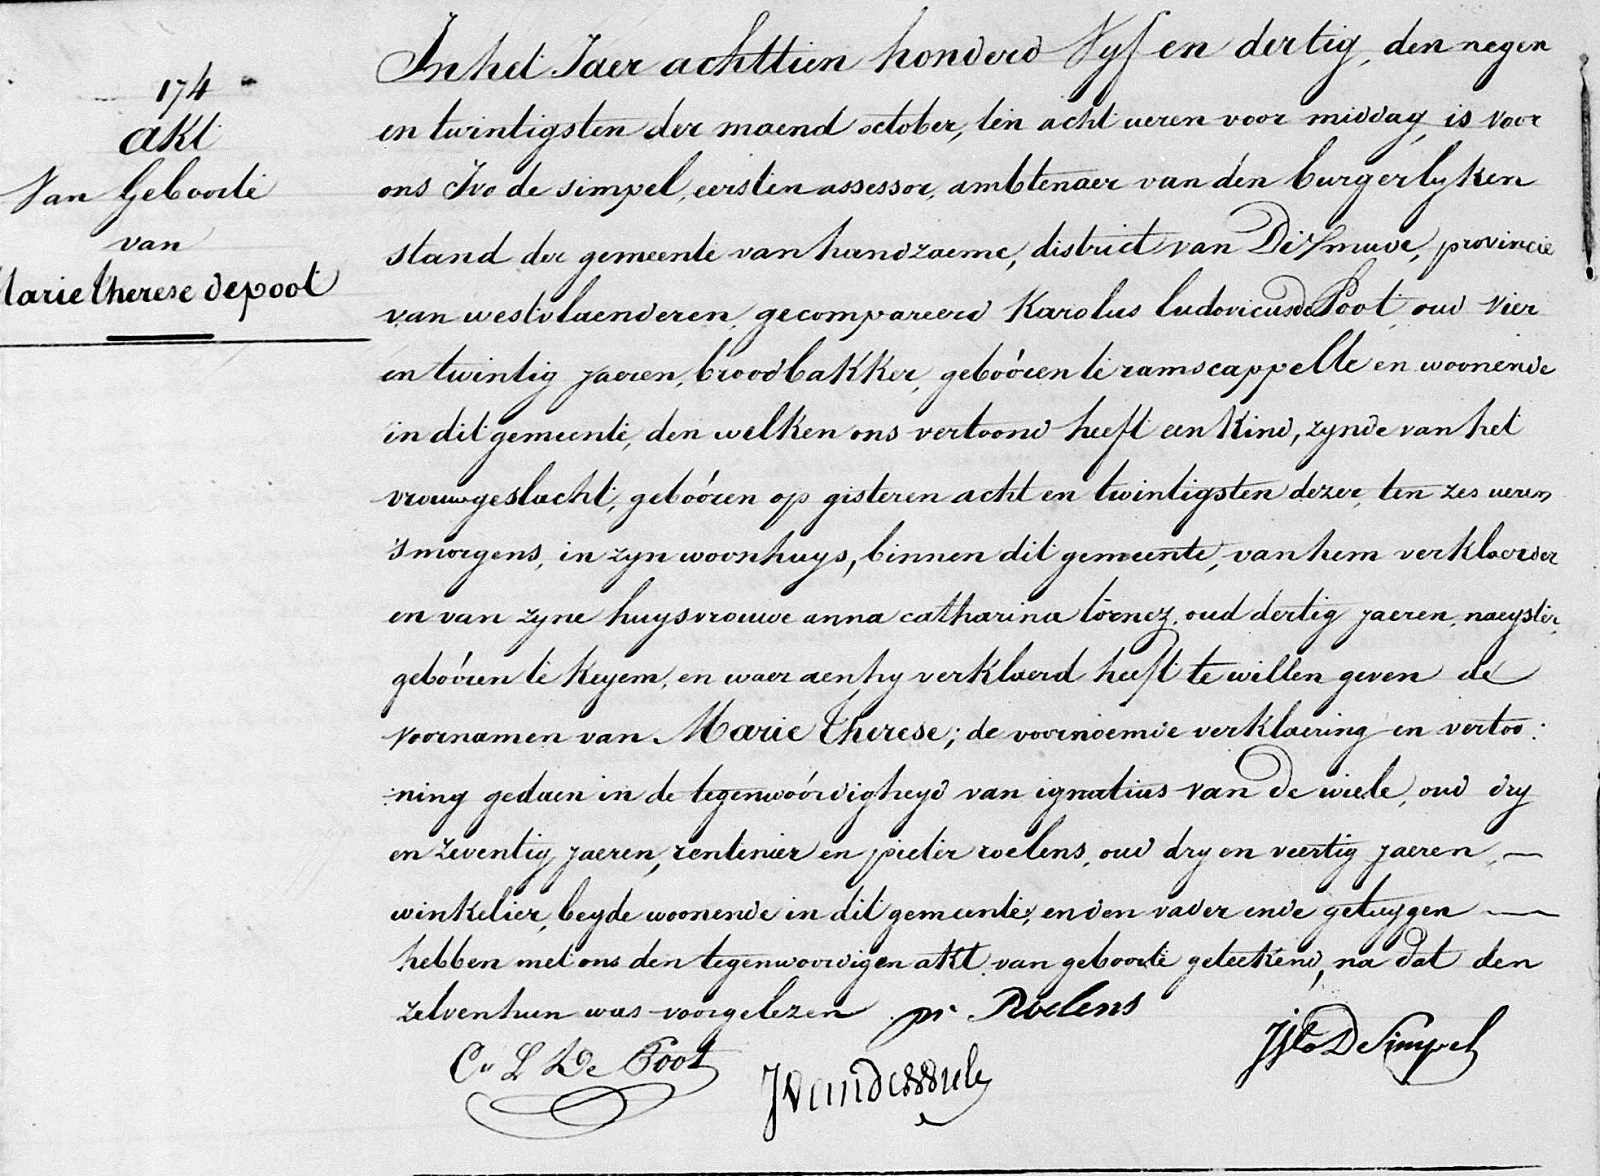 174
akt
Van Geboorte
van
Marie Therese depoot
In het Jaer achttien honderd Vyf en dertig, den negen
en twintigsten der maend october, ten acht ueren voor middag, is voor
ons Ivo de simpel, eersten assessor, ambtenaer van den burgerlyken
stand der gemeente van handzaeme, district van Dixmude, provincie
van westvlaenderen, gecompareerd Karolus ludovicus de Poot, oud vier
en twintig jaeren, broodbakker, gebóóren te ramscappelle en woonende
in dit gemeente, den welken ons vertoond heeft een kind, zynde van het
vrouwgeslacht, gebóóren op gisteren acht en twintigsten dezer, ten zes ueren
'smorgens, in zyn woonhuys, binnen dit gemeente, van hem verklaerder
en van zyne huysvrouwe anna catharina tórnez, oud dertig jaeren, naeyster,
gebóóren te Keyem, en waer aen hy verklaerd heeft te willen geven de
voornamen van Marie Therese; de voornoemde verklaering en vertoo:
:ning gedaen in de tegenwóórdigheyd van ignatius van De wiele, oud dry
en zeventig jaeren, rentenier en pieter roelens, oud dry en veertig jaeren, —
winkelier, beyde woonende in dit gemeente; en den vader ende getuygen —
hebben met ons den tegenwoordigen akt van geboorte geteekend, na dat den
zelven hun was voorgelezen pr Roelens
Cs L De Poot
J vandewiele
Ivo De Simpel